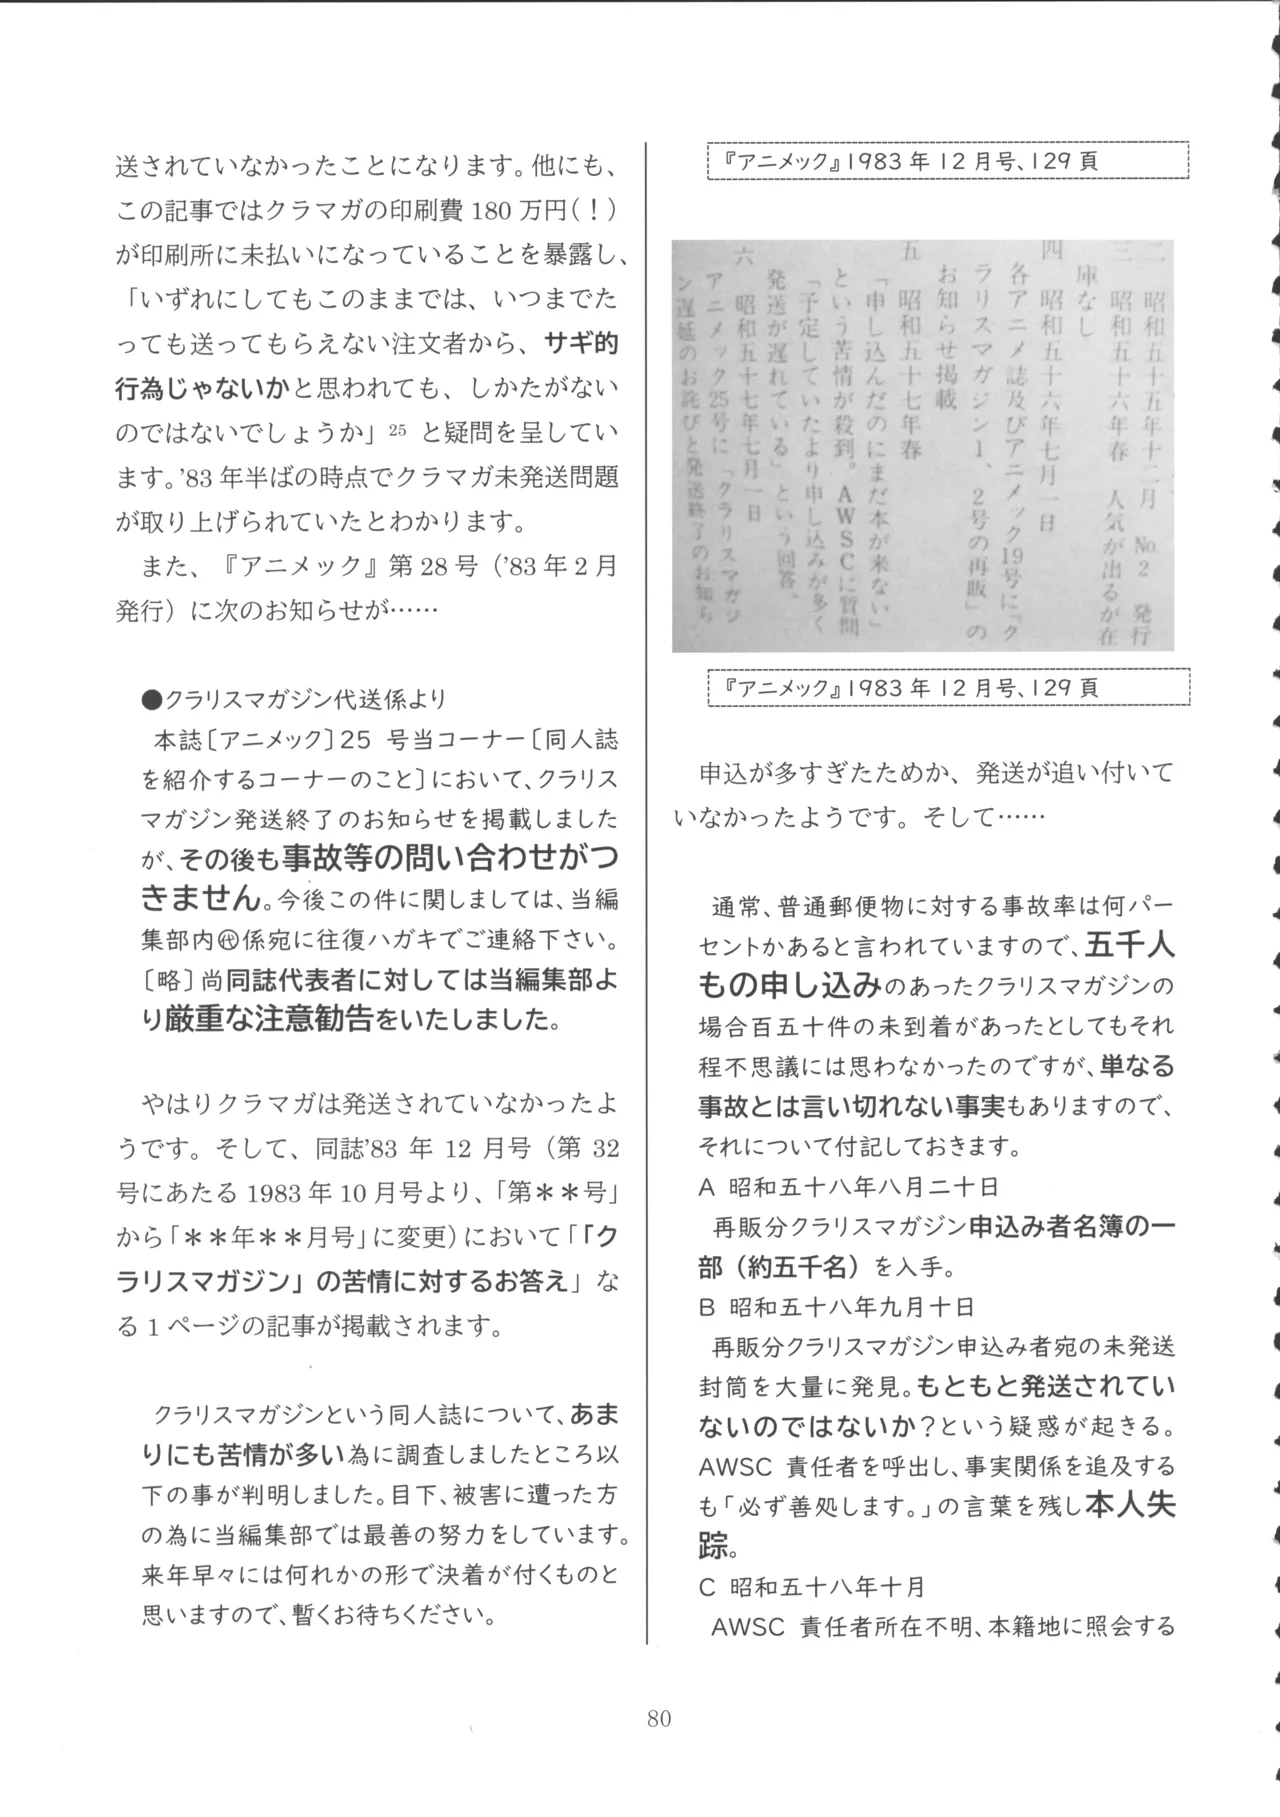 送されていなかったことになります。他にも、
この記事ではクラマガの印刷費180万円（！）
が印刷所に未払いになっていることを暴露し、
「いずれにしてもこのままでは、いつまでた
っても送ってもらえない注文者から、サギ的
行為じゃないかと思われても、しかたがない
のではないでしょうか」25 と疑問を呈してい
ます。’83年半ばの時点でクラマガ未発送問題
が取り上げられていたとわかります。
また、『アニメック』第28号（’83年2月
発行）に次のお知らせが……
●クラリスマガジン代送係より
本誌〔アニメック〕25 号当コーナー〔同人誌
を紹介するコーナーのこと〕において、クラリス
マガジン発送終了のお知らせを掲載しました
が、その後も事故等の問い合わせがつ
きません。今後この件に関しましては、当編
集部内㋹係宛に往復ハガキでご連絡下さい。
〔略〕尚同誌代表者に対しては当編集部よ
り厳重な注意勧告をいたしました。
やはりクラマガは発送されていなかったよ
うです。そして、同誌’83 年 12 月号（第 32
号にあたる1983年10月号より、「第＊＊号」
から「＊＊年＊＊月号」に変更）において「「ク
ラリスマガジン」の苦情に対するお答え」な
る1ページの記事が掲載されます。
クラリスマガジンという同人誌について、あま
りにも苦情が多い為に調査しましたところ以
下の事が判明しました。目下、被害に遭った方
の為に当編集部では最善の努力をしています。
来年早々には何れかの形で決着が付くものと
思いますので、暫くお待ちください。
『アニメック』1983年12月号、129頁
二 昭和五十五年十二月 No.2 発行
三 昭和五十六年春 人気が出るが在
庫なし
四 昭和五十六年七月一日
各アニメ誌及びアニメック19号に「ク
ラリスマガジン1、2号の再販」の
お知らせ掲載
五 昭和五十七年春
「申し込んだのにまだ本が来ない」
という苦情が殺到。AWSCに質問
「予定していたより申し込みが多く
発送が遅れている」という回答。
六 昭和五十七年七月一日
アニメック25号に「クラリスマガジ
ン遅延のお詫びと発送終了のお知ら
『アニメック』1983年12月号、129頁
申込が多すぎたためか、発送が追い付いて
いなかったようです。そして……
通常、普通郵便物に対する事故率は何パー
セントかあると言われていますので、五千人
もの申し込みのあったクラリスマガジンの
場合百五十件の未到着があったとしてもそれ
程不思議には思わなかったのですが、単なる
事故とは言い切れない事実もありますので、
それについて付記しておきます。
A 昭和五十八年八月二十日
再販分クラリスマガジン申込み者名簿の一
部（約五千名）を入手。
B 昭和五十八年九月十日
再販分クラリスマガジン申込み者宛の未発送
封筒を大量に発見。もともと発送されてい
ないのではないか？という疑惑が起きる。
AWSC 責任者を呼出し、事実関係を追及する
も「必ず善処します。」の言葉を残し本人失
踪。
C 昭和五十八年十月
AWSC 責任者所在不明、本籍地に照会する
80